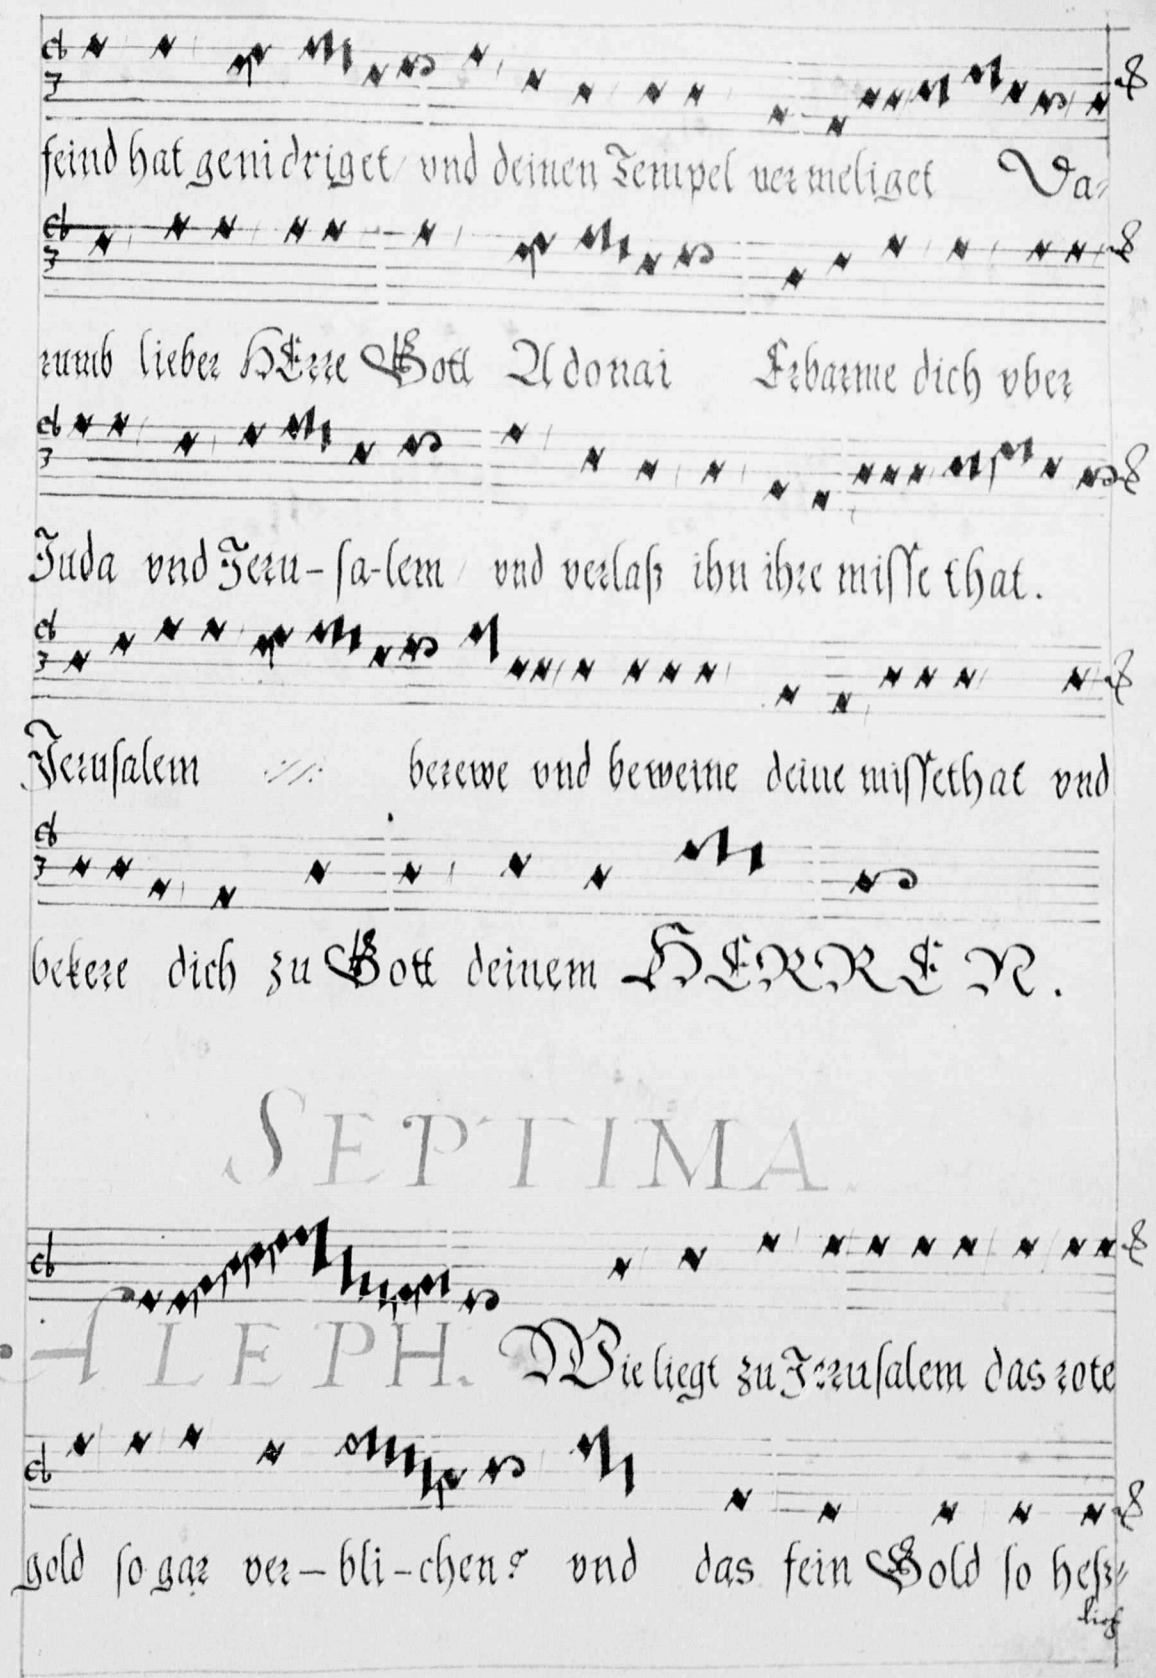 feind hat genidriget / vnd deinen Tempel vermeliget Da⸗
rumb lieber HErre Gott Adonai Erbarme dich vber
Juda vnd Jeru-sa-lem / vnd verlaß ihn ihre misse that.
Jerusalem ·//· berewe vnd beweine deine missethat vnd
bekere dich zu Gott deinem HERREN.
SEPTIMA
ALEPH. Wie liegt zu Jerusalem das rote
gold so gar ver-bli-chen? vnd das fein Gold so heß⸗
lich